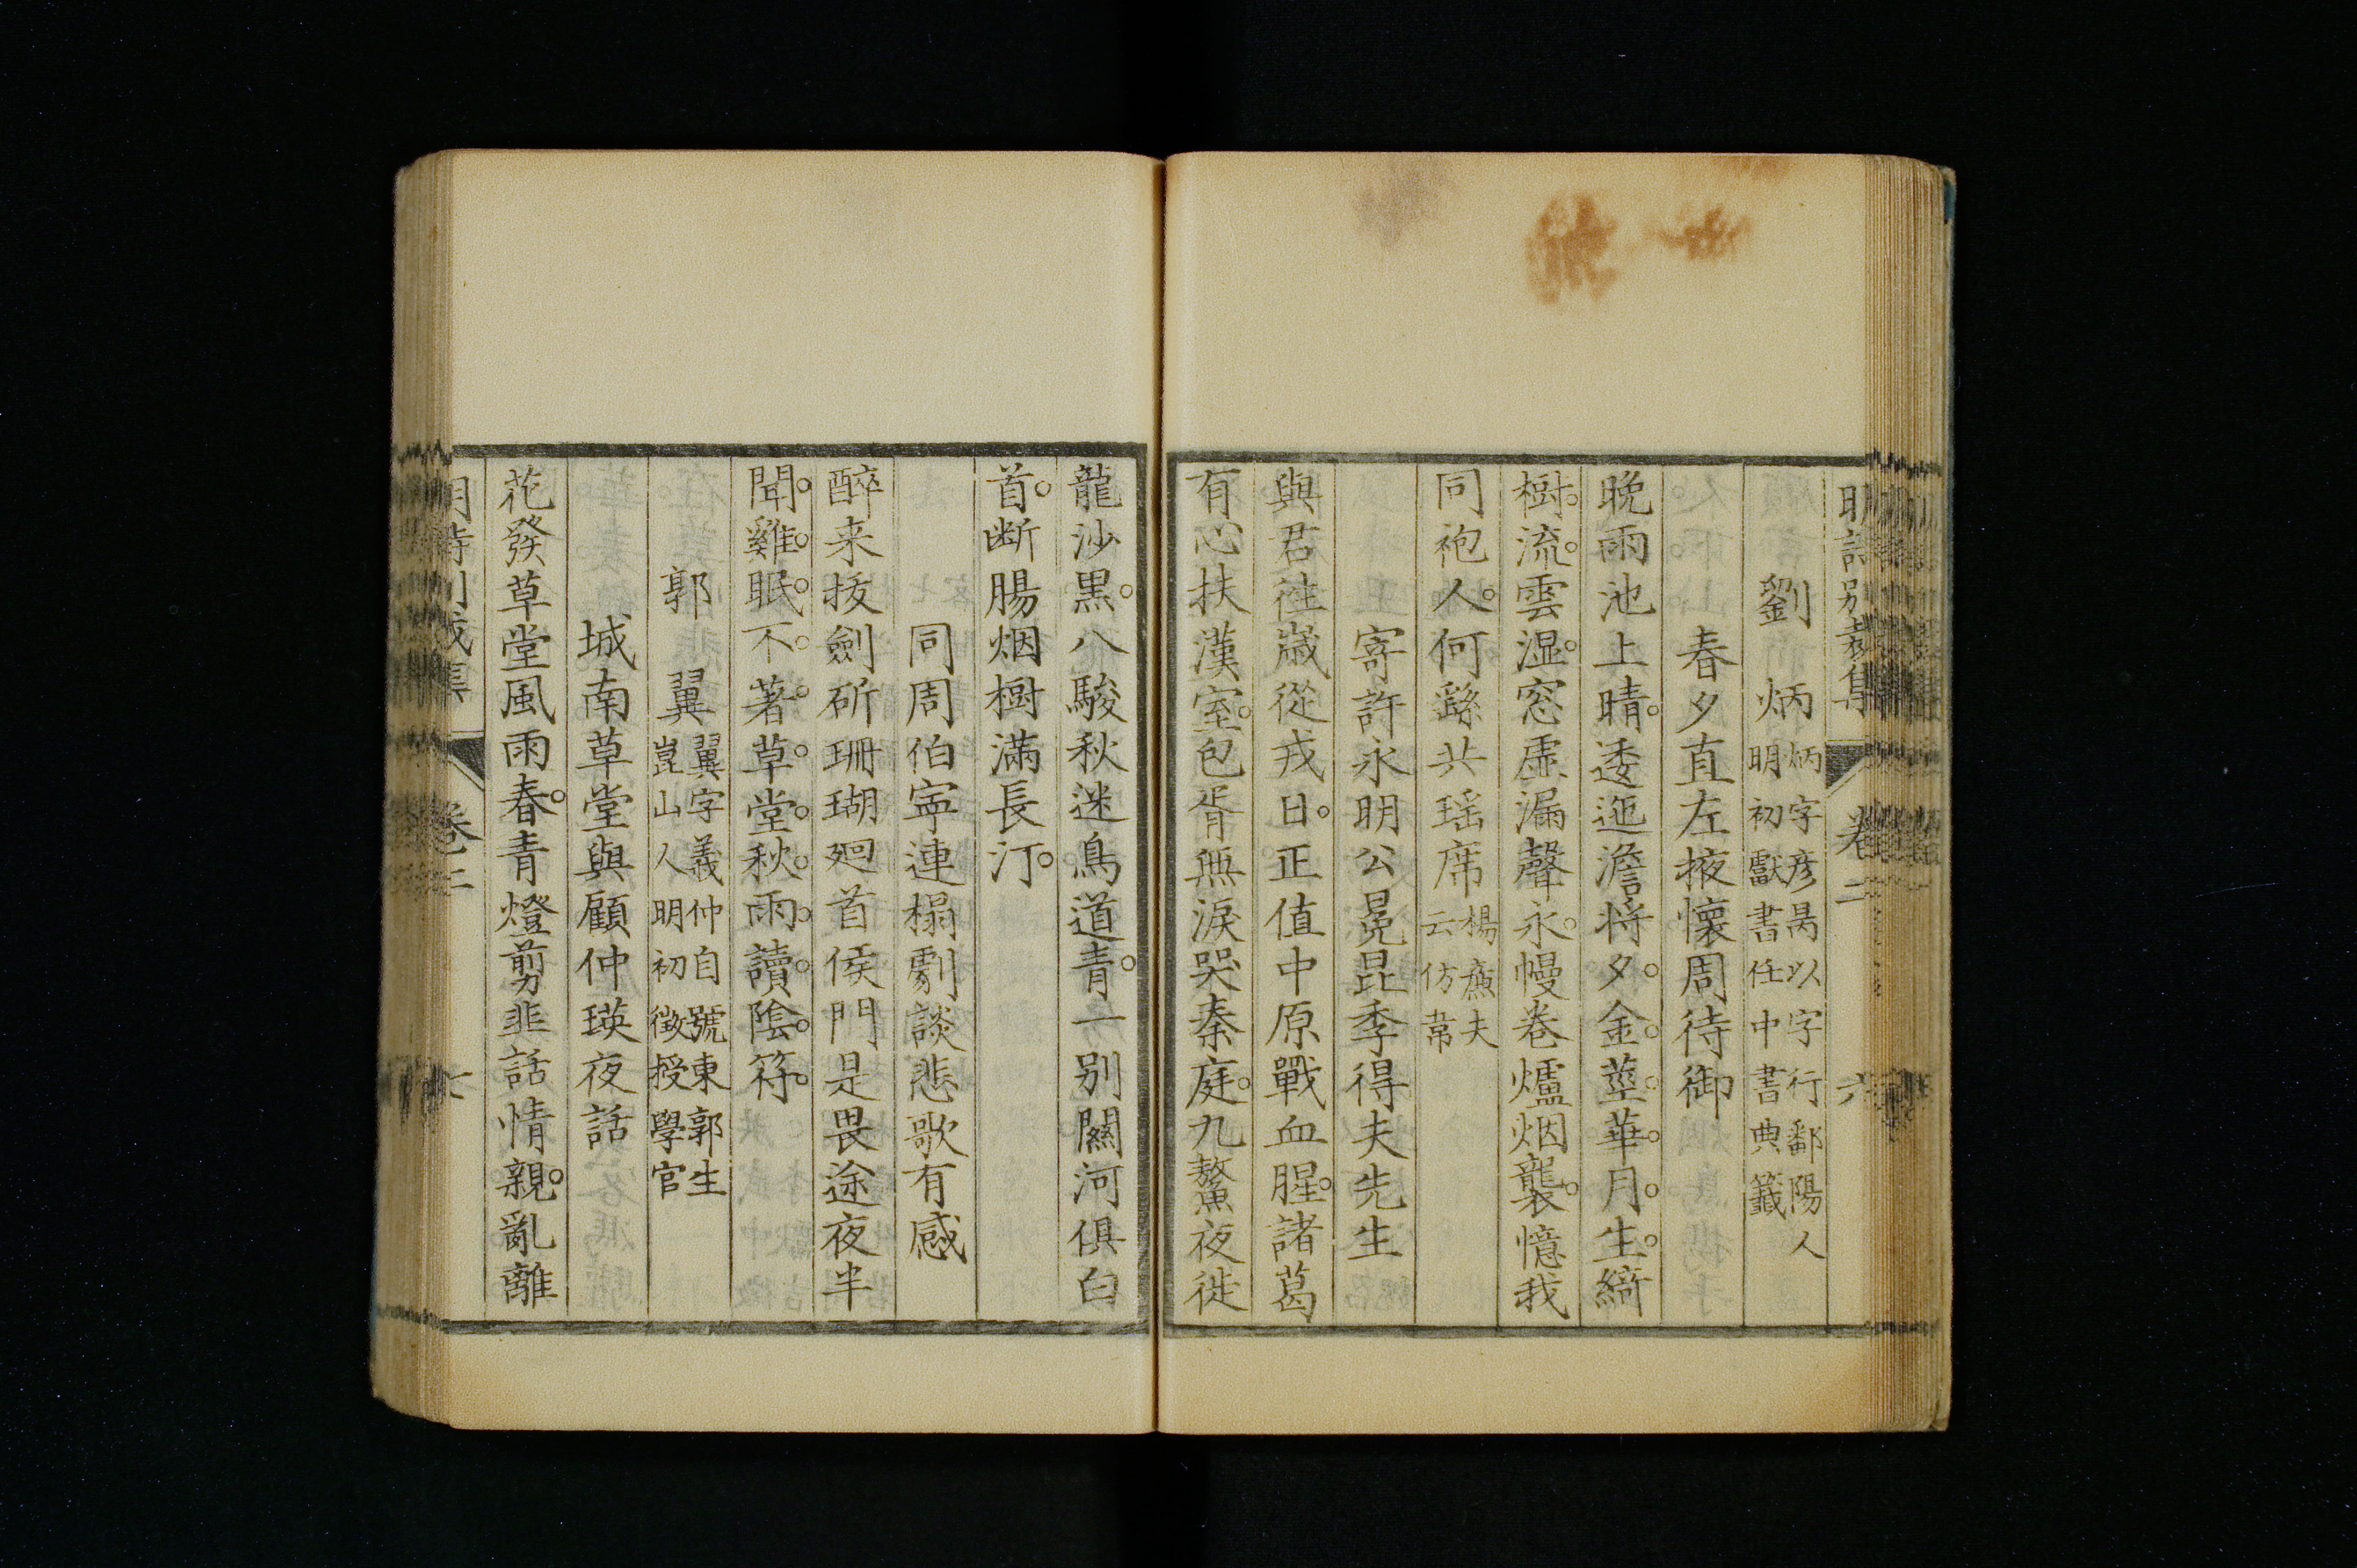 明詩別裁集 卷二 六
劉 炳 炳字彥昺以字行鄱陽人
明初獻書任中書典籖
春夕直左掖懷周待御
晚雨池上晴逶迤澹将夕金莖華月生綺
樹流雲湿窓虛漏聲永幔卷爐烟襲憶我
同袍人何繇共瑶席 楊廉夫
云仿韋
寄許永明公冕昆季得夫先生
與君徃嵗從戎日正值中原戰血腥諸葛
有心扶漢室包胥無淚哭秦庭九鰲夜徙
龍沙黒八駿秋迷鳥道青一别關河俱白
首断腸烟樹滿長汀
同周伯寜連榻劇談悲歌有感
醉来拔劍斫珊瑚廻首侯門是畏途夜半
聞雞眠不著草堂秋雨讀陰符
郭 翼 翼字義仲自號東郭生
崑山人明初徴授學官
城南草堂與顧仲瑛夜話
花發草堂風雨春青燈剪韭話情親亂離
明詩別裁集 卷二 七